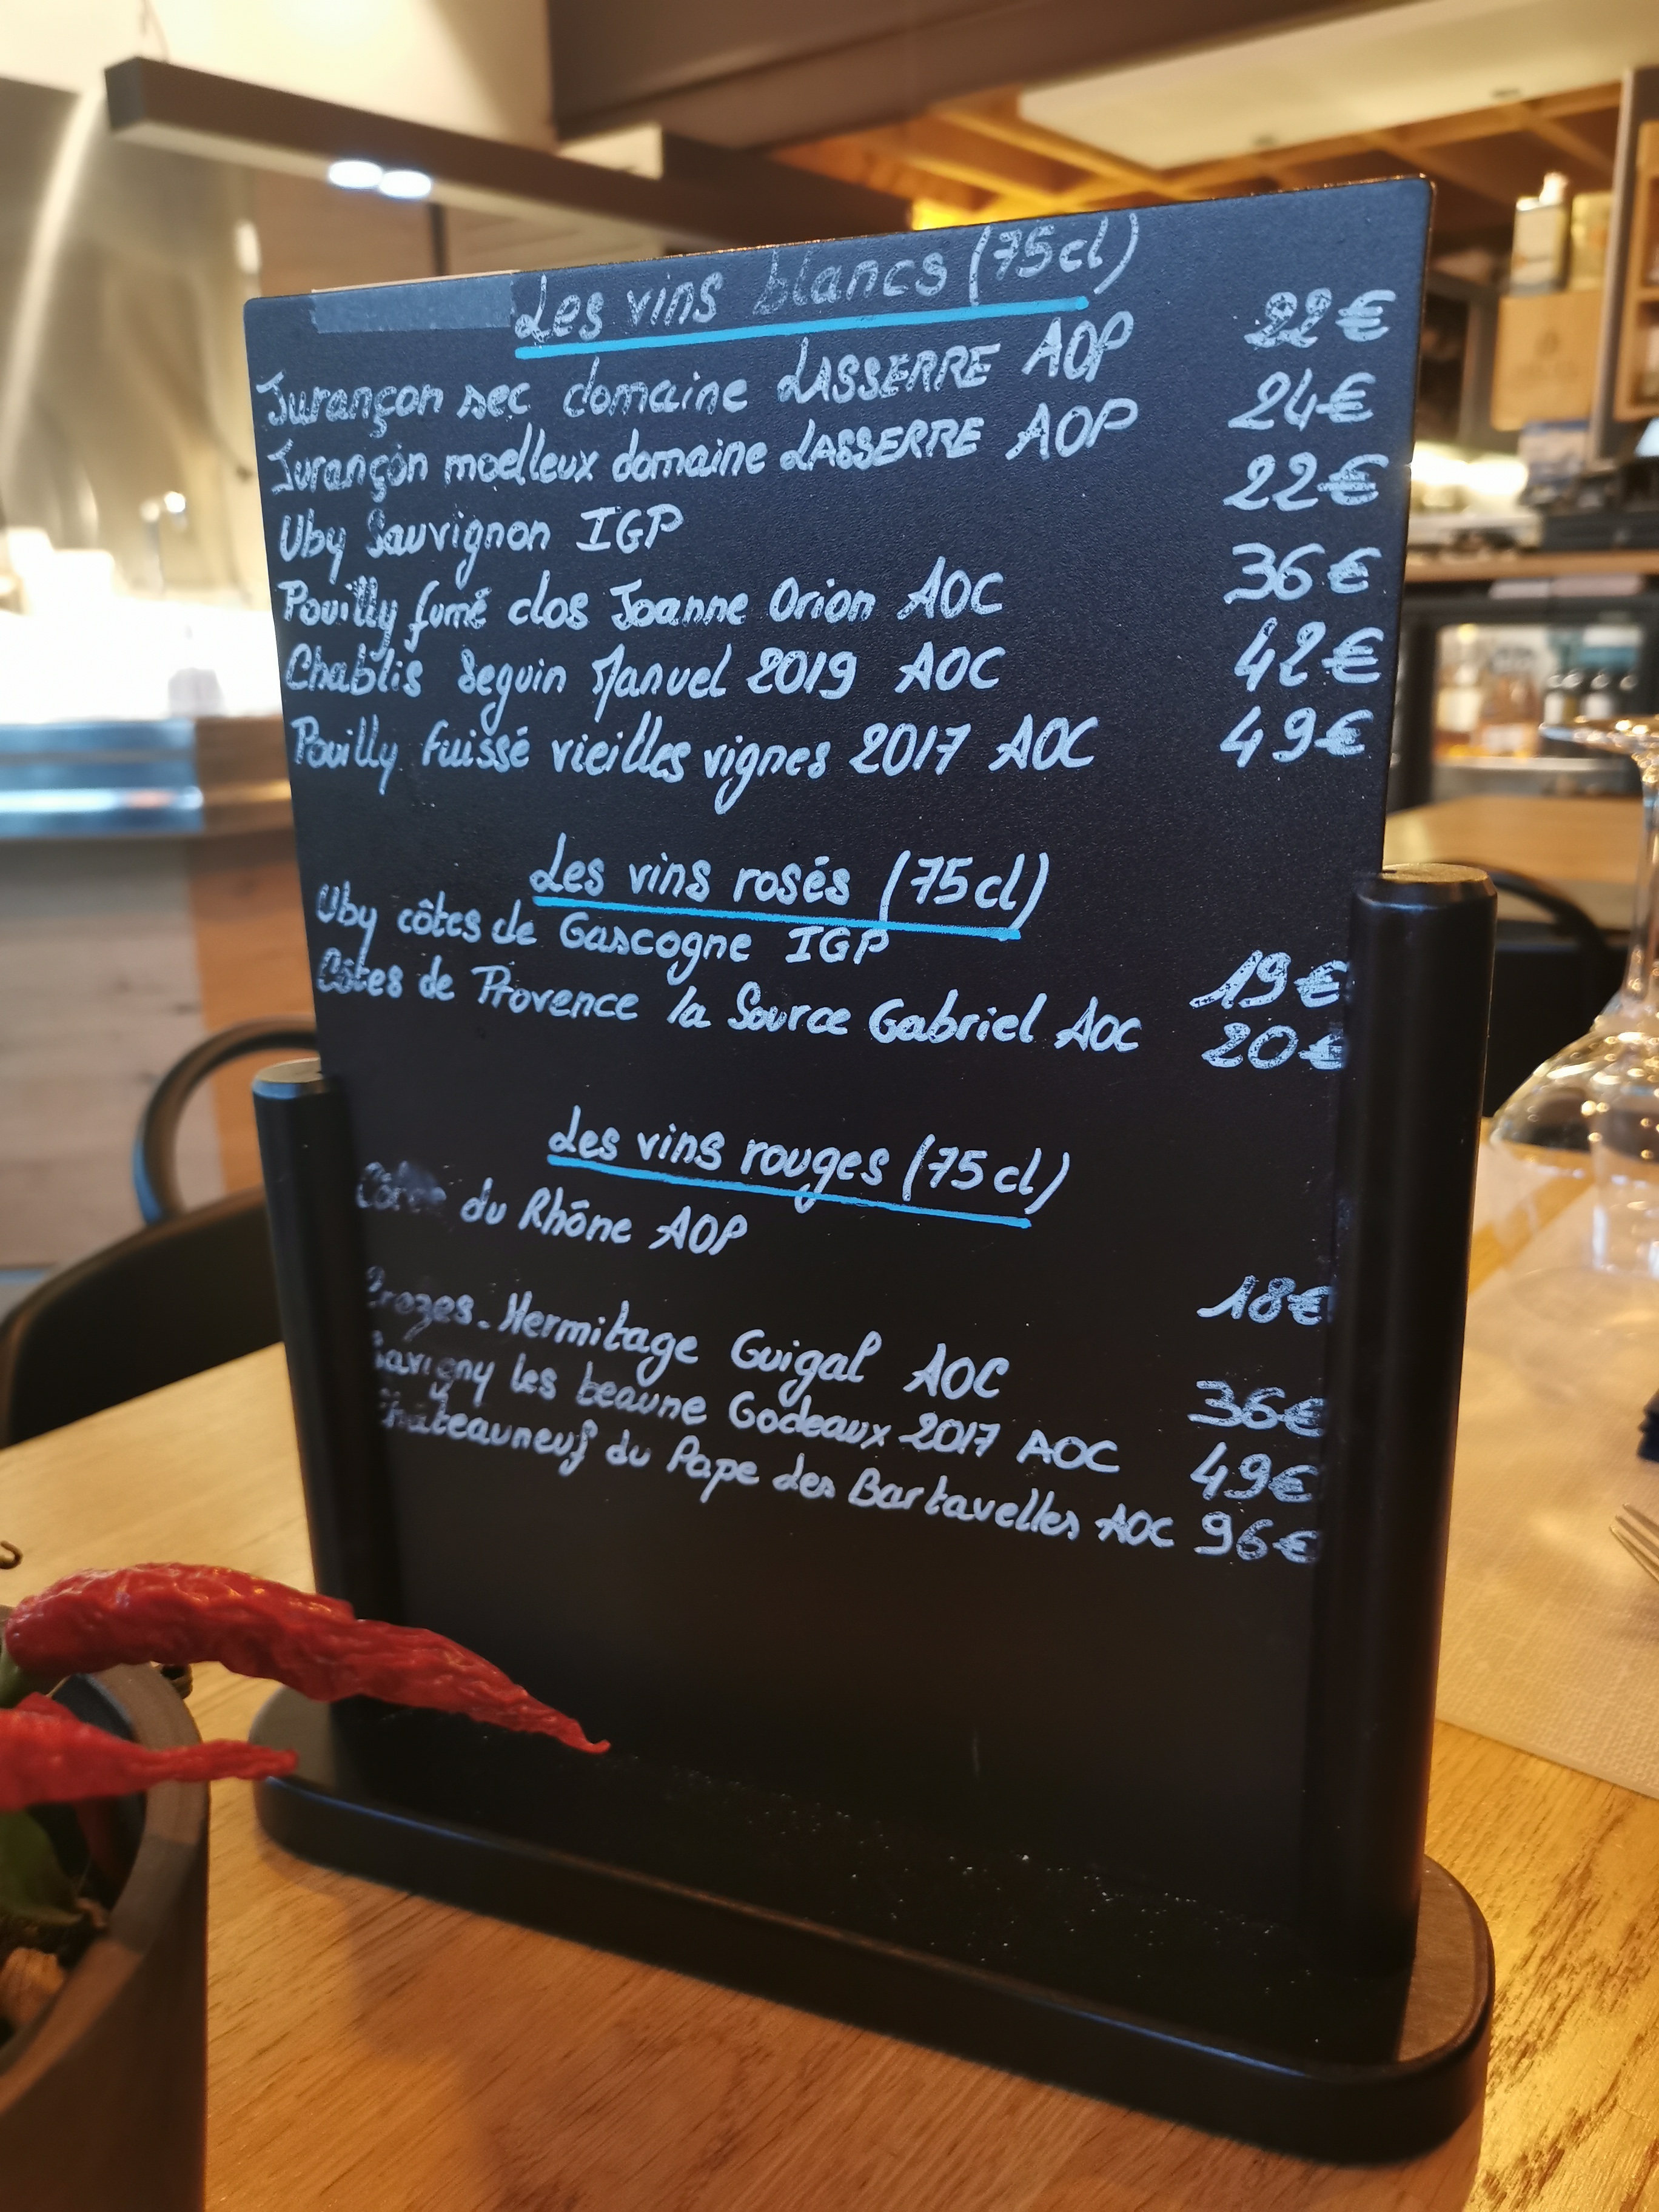 Les vins blancs (75cl)
Jurançon sec domaine LASSERRE AOP 22€
Jurançon moelleux domaine LASSERRE AOP 24€
Uby Sauvignon IGP 22€
Pouilly fumé clos Joanne Orion AOC 36€
Chablis Seguin Manuel 2019 AOC 42€
Pouilly Fuissé vieilles vignes 2017 AOC 49€
Les vins rosés (75cl)
Uby côtes de Gascogne IGP 19€
Côtes de Provence la Source Gabriel AOC 20€
Les vins rouges (75cl)
du Rhône AOP 18€
Crozes-Hermitage Guigal AOC 36€
Savigny les beaune Godeaux 2017 AOC 49€
Châteauneuf du Pape des Bartavelles AOC 96€